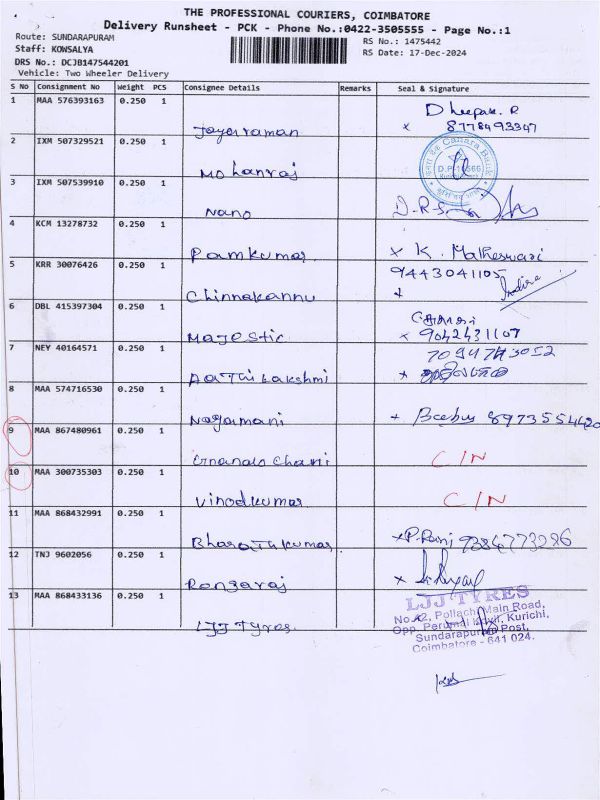 THE PROFESSIONAL COURIERS, COIMBATORE
Delivery Runsheet - PCK - Phone No.:0422-3505555 - Page No.:1
Route: SUNDARAPURAM
RS No.: 1475442
Staff: KOWSALYA
RS Date: 17-Dec-2024
DRS No.: DCJB147544201
Vehicle: Two Wheeler Delivery
S No Consignment No Weight PCS Consignee Details Remarks Seal & Signature
1 MAA 576393163 0.250 1 Dheepak. R
Jayaraman x 8778493347
2 IXM 507329521 0.250 1 Canara Bank
Mohanraj
3 IXM 507539910 0.250 1
Nano
4 KCM 13278732 0.250 1
Ramkumar x K. Matheswari
5 KRR 30076426 0.250 1 9443041105
Chinnakannu Indira
6 DBL 415397304 0.250 1
Majestic x 9042431107
7 NEY 40164571 0.250 1
Aathi Lakshmi
8 MAA 574716530 0.250 1
Nagamani
9 MAA 867480961 0.250 1
C/N
10 MAA 300735303 0.250 1
Vinodkumar C/N
11 MAA 868432991 0.250 1
Bharathkumar
12 TNJ 9602056 0.250 1
Rengaraj x
13 MAA 868433136 0.250 1 LJJ TYRES
LJJ Tyres.
No.#2, Pollachi Main Road,
Opp. Perumal Kovil, Kurichi,
Sundarapuram Post,
Coimbatore - 641 024.